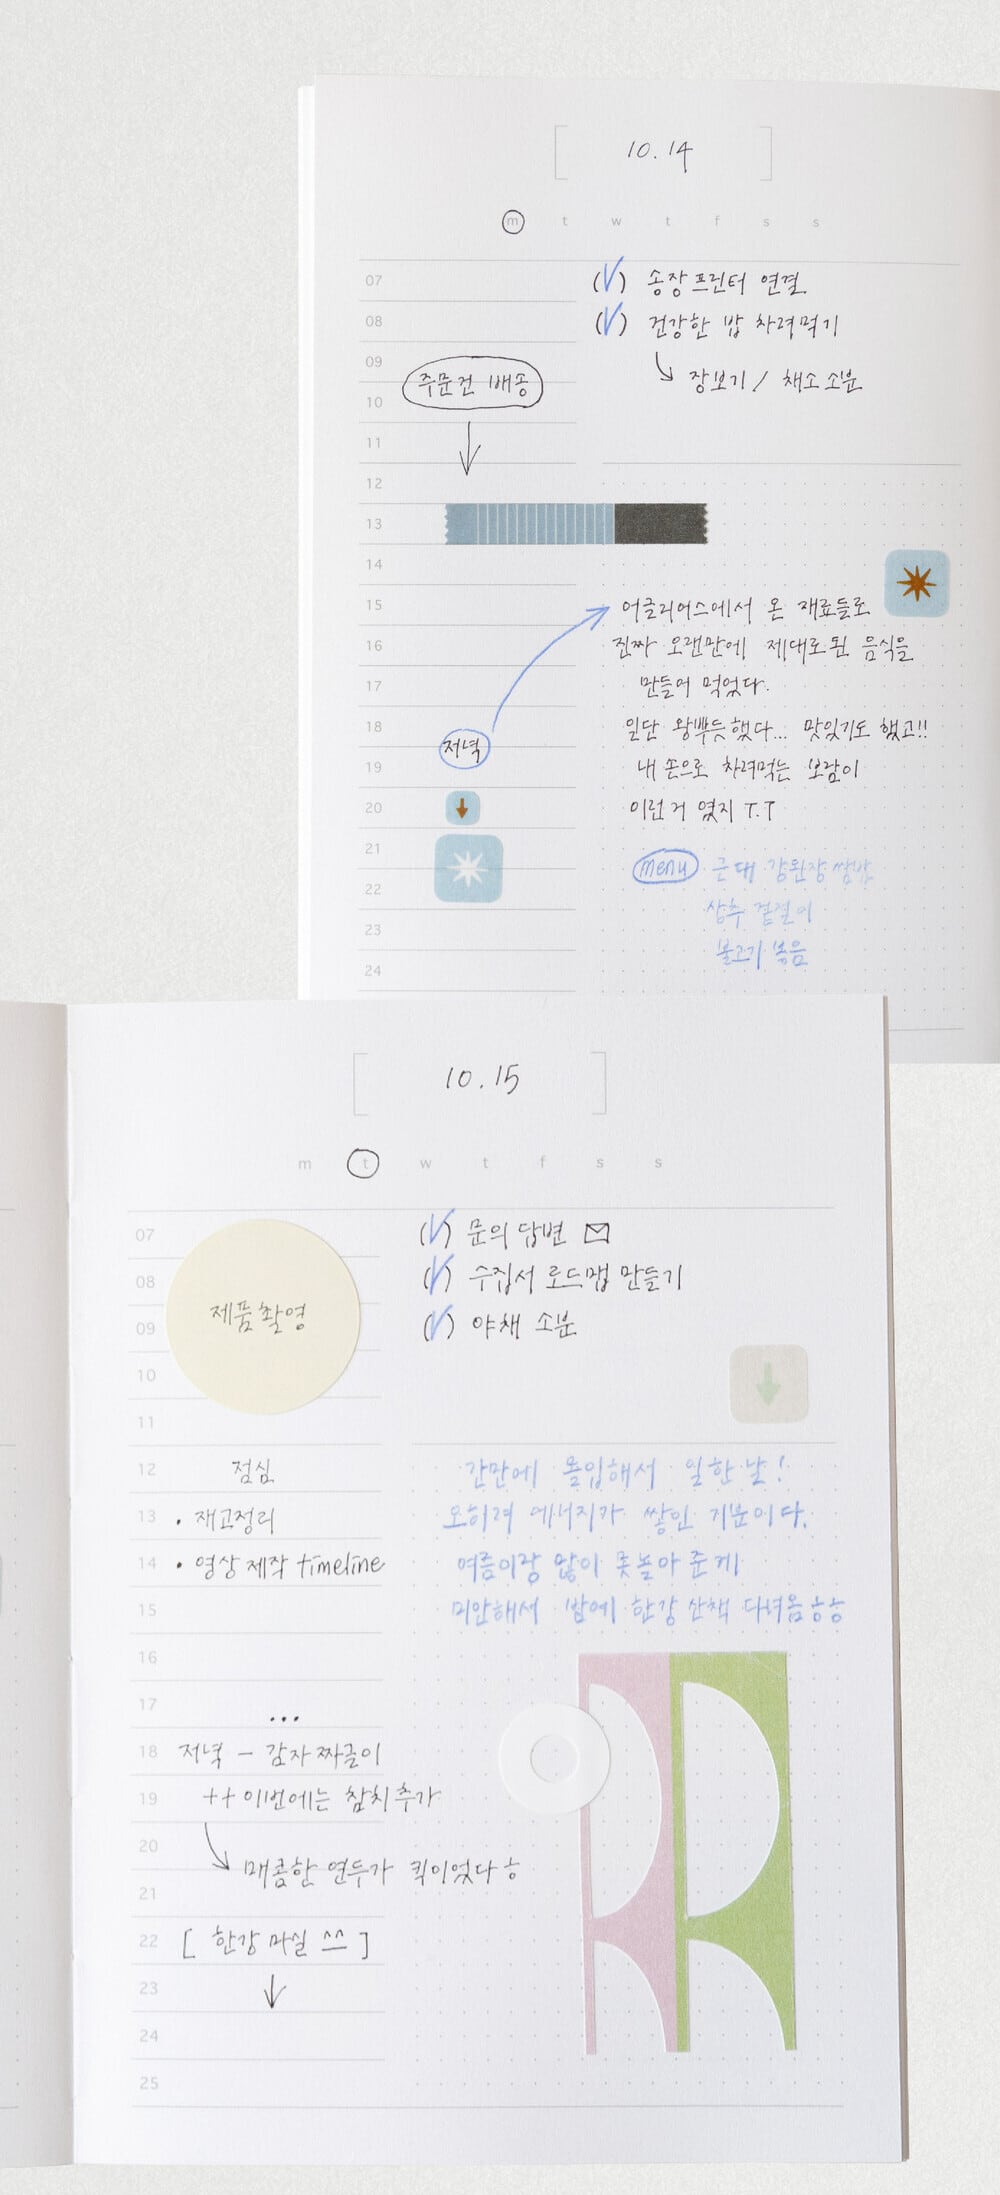 10.14
m t w t f s s
07
08
09
10
11
12
13
14
15
16
17
18
19
20
21
22
23
24
(✓) 송장프린터 연결
(✓) 건강한 밥 차려먹기
↘ 장보기 / 채소 소분
주문건 배송
↓
어글리어스에서 온 재료들로
진짜 오랜만에 제대로된 음식을
만들어 먹었다.
일단 왕뿌듯했다... 맛있기도 했고!!
내 손으로 차려먹는 보람이
이런거 였지 T.T
저녁
menu 근대 강된장 쌈밥
상추 겉절이
불고기 볶음
10.15
m t w t f s s
07
08
09
10
11
12
13
14
15
16
17
18
19
20
21
22
23
24
25
제품촬영
(✓) 문의 답변
(✓) 수집서 로드맵 만들기
(✓) 야채 소분
점심
• 재고정리
• 영상 제작 timeline
간만에 몰입해서 일한 날!
오히려 에너지가 쌓인 기분이다.
여름이랑 많이 못놀아 준게
미안해서 밤에 한강 산책 다녀옴ㅎㅎ
...
저녁 - 감자짜글이
++ 이번에는 참치추가
↘ 매콤한 연두가 킥이었다ㅎ
[ 한강 마실 ^^ ]
↓